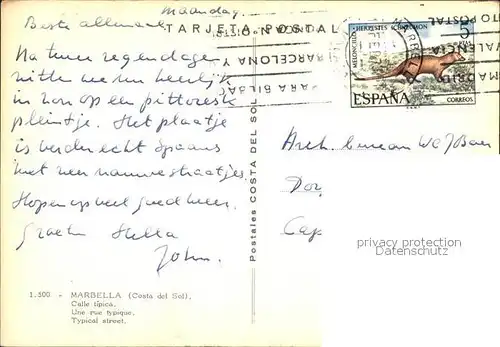 Maandag.
Beste allemaal
TARJETA POSTAL
Na twee regendagen
zitten we nu heerlijk
in zon op een pittoresk
pleintje. Het plaatje
is verder echt Spaans
met zeer nauwe straatjes.
Hopen op veel goed weer.
Groeten Hella
John.
1.500 - MARBELLA (Costa del Sol).
Calle típica.
Une rue typique.
Typical street.
Postales COSTA DEL SOL
MELONCILLO - HERPESTES ICHNEUMON
5
PTAS
ESPAÑA
CORREOS
BARCELONA Y
PARA BILBAO
MADRID
VALENCIA
POSTAL
Arch. bureau
Cap
privacy protection
Datenschutz